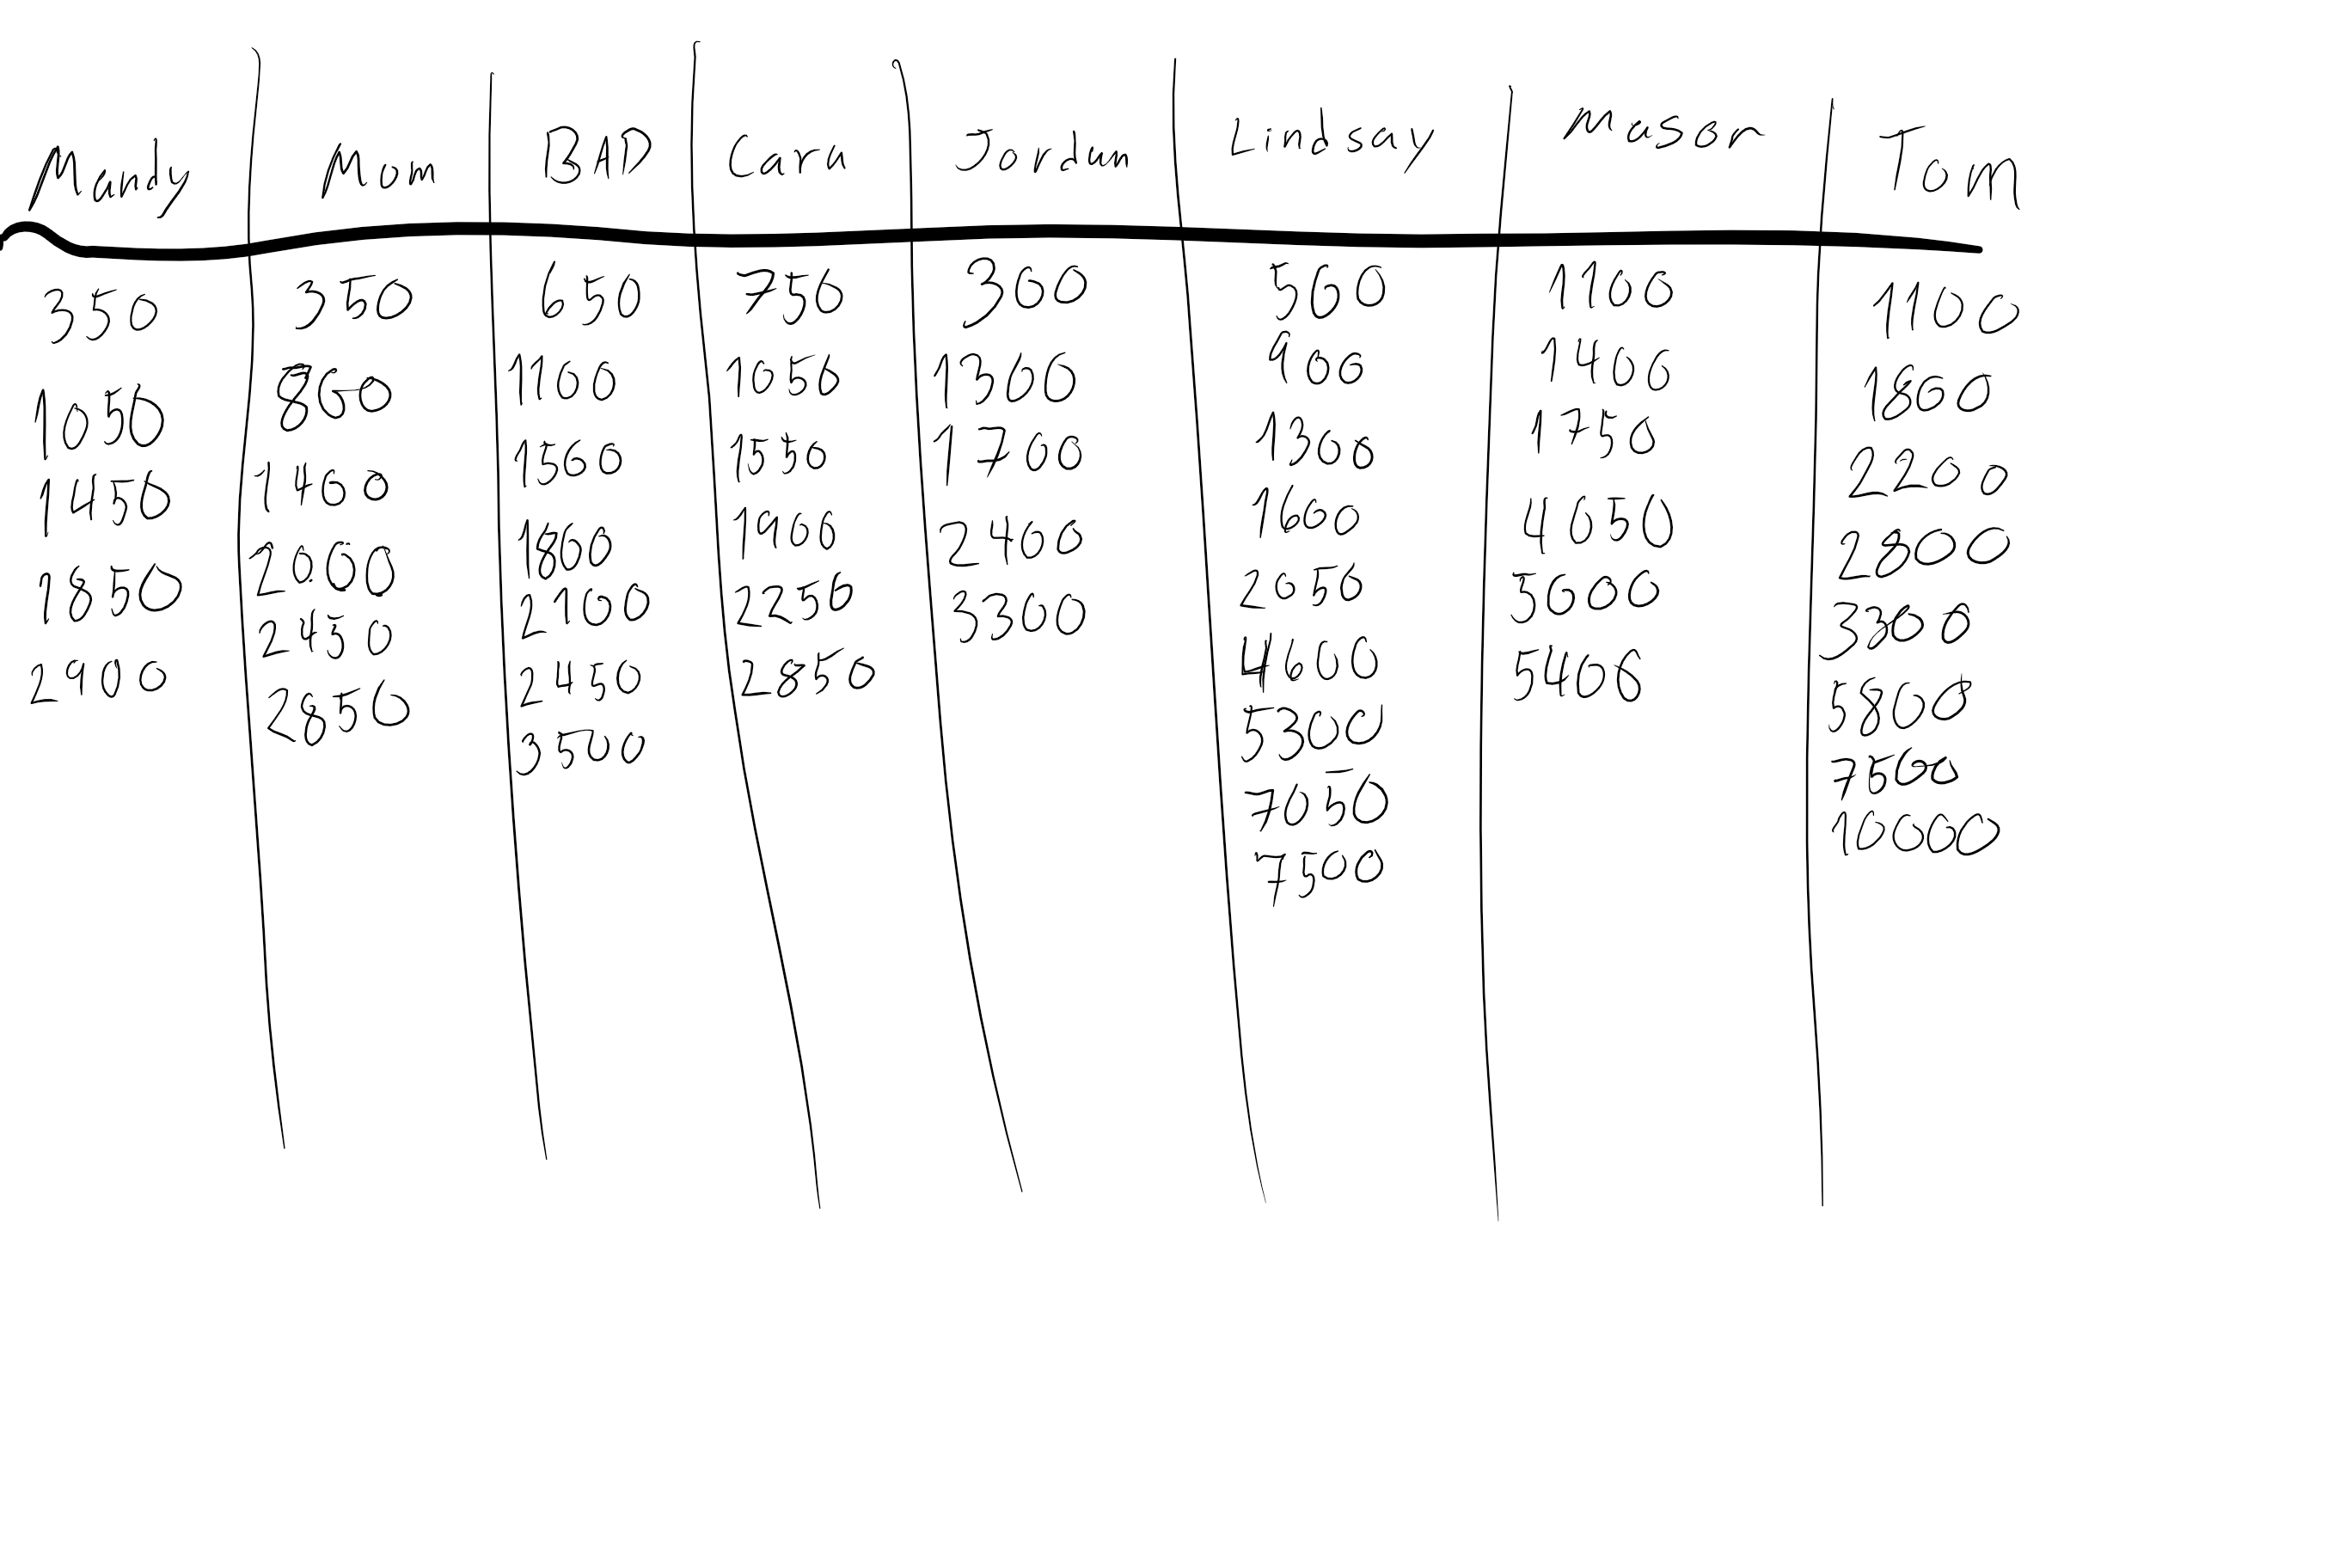 Mandy Mom BAD Cara Jordan Lindsay Mason Tom
350 350 650 750 300 500 1100 1100
1050 800 1100 1050 1300 900 1400 1800
1450 1400 1500 1550 1700 1300 1750 2200
1850 2000 1800 1900 2400 1600 4050 2800
2910 2450 2100 2250 3300 2050 5000 3300
2850 2450 2850 4600 5400 5800
3500 5300 7500
7050 10000
7500